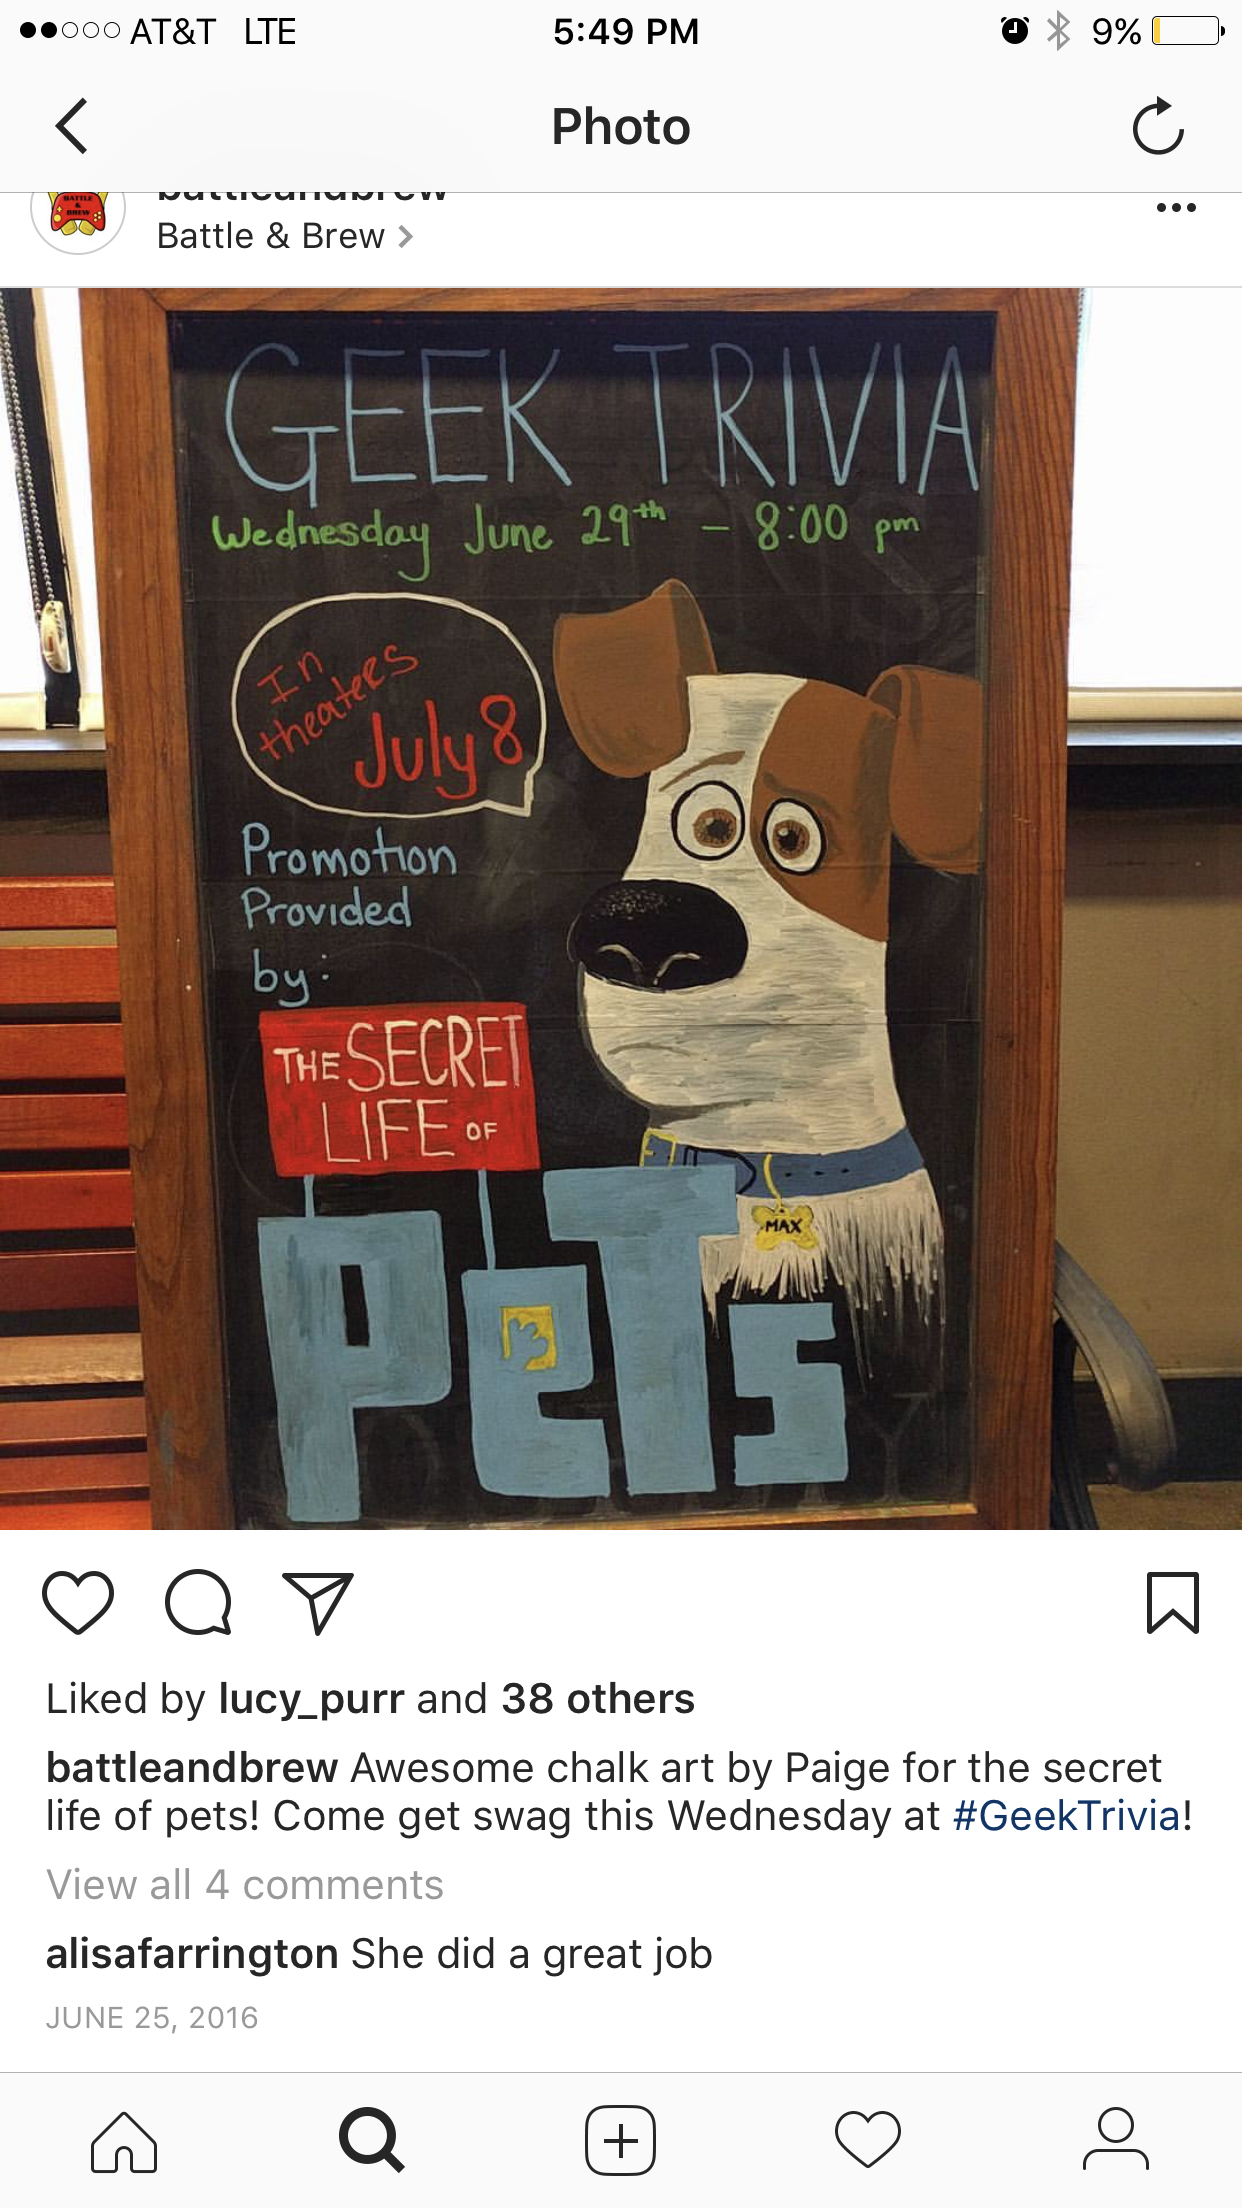 AT&T LTE 5:49 PM 9%
Photo
battleandbrew
BATTLE
&
BREW
Battle & Brew
GEEK TRIVIA
Wednesday June 29th - 8:00 pm
In
theaters
July 8
Promotion
Provided
by:
THE SECRET
LIFE OF
PeTs
MAX
Liked by lucy_purr and 38 others
battleandbrew Awesome chalk art by Paige for the secret
life of pets! Come get swag this Wednesday at #GeekTrivia!
View all 4 comments
alisafarrington She did a great job
JUNE 25, 2016